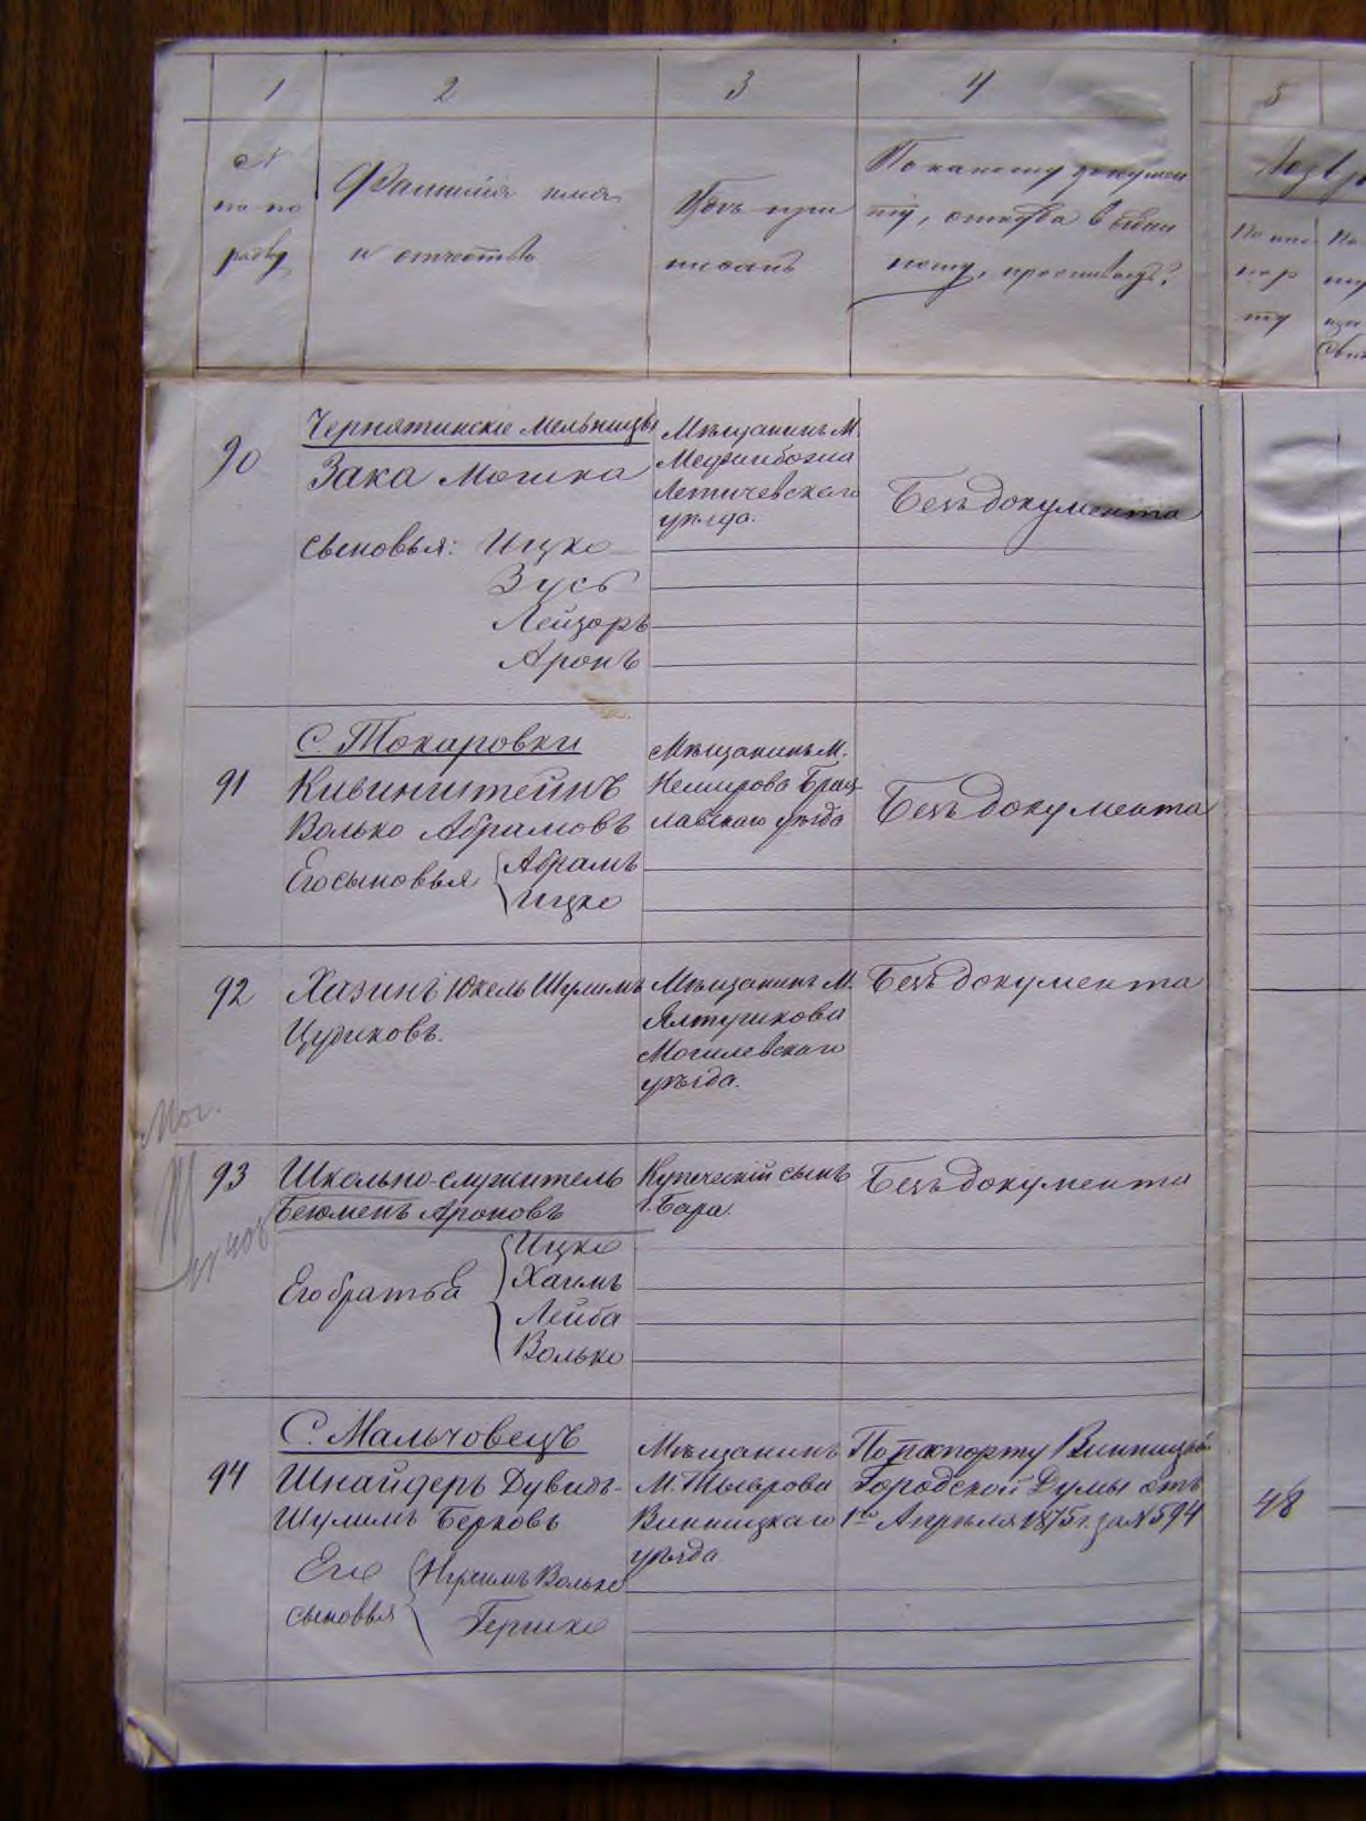 1 2 3 4 5
№ по по рядку
Фамилія имя и отчество
Гдѣ при писанъ
По какому докумен ту, откуда выдан ному, проживаетъ?
По пас пор ту
Чернятинскіе Мельницы
90 Зака Мошка
Мѣщанинъ М. Меджибожа Летичевскаго уѣзда.
Безъ документа
Сыновья: Ицко
Зусь
Лейзоръ
Аронъ
С. Токаровки
91 Кивинштейнъ
Волько Абрамовъ
Мѣщанинъ М. Немирова Брац лавскаго уѣзда
Безъ документа
Его сыновья Абрамъ
Ицко
92 Хазинъ Юкель Шулимъ
Цудиковъ.
Мѣщанинъ М. Ялтушкова Могилевскаго уѣзда.
Безъ документа
Мог.
93 Школьно-служитель
Беюменъ Ароновъ
Купеческій сынъ г. Бара.
Безъ документа
Его братья Ицко
Хаимъ
Лейба
Волько
С. Мальчовецъ
94 Шнайдеръ Дувидъ-
Шулимъ Берковъ
Мѣщанинъ М. Тыврова Винницкаго уѣзда
По паспорту Винницкой Городской Думы отъ 1го Апрѣля 1875 г. за № 594
48
Его сыновья Нухимъ Волько
Гершко